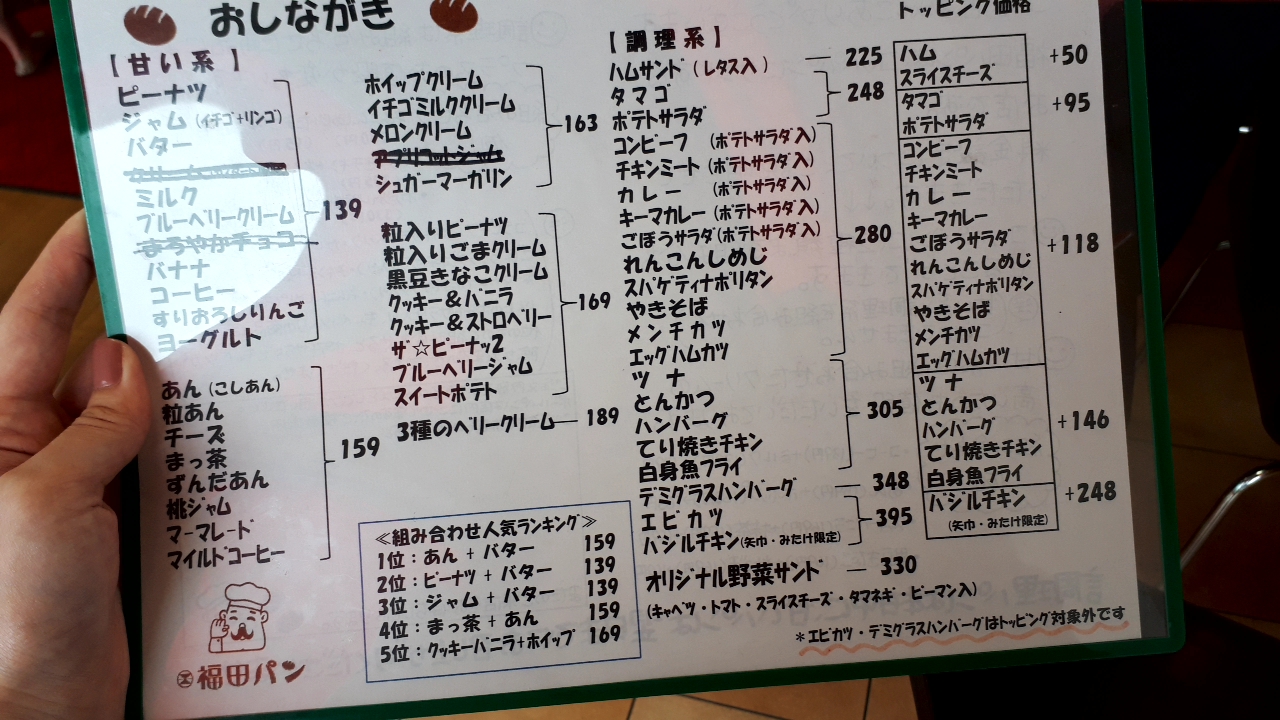 おしながき
【甘い系】
ピーナツ
ジャム(イチゴ+リンゴ)
バター
ミルク
ブルーベリークリーム
まろやかチョコ
バナナ
コーヒー
すりおろしりんご
ヨーグルト
139
あん(こしあん)
粒あん
チーズ
まっ茶
ずんだあん
桃ジャム
マーマレード
マイルドコーヒー
159
福田パン
ホイップクリーム
イチゴミルククリーム
メロンクリーム
アプリコットジャム
シュガーマーガリン
163
粒入りピーナツ
粒入りごまクリーム
黒豆きなこクリーム
クッキー&バニラ
クッキー&ストロベリー
ザ☆ピーナッ2
ブルーベリージャム
スイートポテト
169
3種のベリークリーム 189
≪組み合わせ人気ランキング≫
1位:あん + バター 159
2位:ピーナツ + バター 139
3位:ジャム + バター 139
4位:まっ茶 + あん 159
5位:クッキーバニラ+ホイップ 169
【調理系】
ハムサンド(レタス入) 225
タマゴ
ポテトサラダ
248
コンビーフ (ポテトサラダ入)
チキンミート (ポテトサラダ入)
カレー (ポテトサラダ入)
キーマカレー (ポテトサラダ入)
ごぼうサラダ(ポテトサラダ入)
れんこんしめじ
スパゲティナポリタン
やきそば
メンチカツ
エッグハムカツ
280
ツナ
とんかつ
ハンバーグ
てり焼きチキン
白身魚フライ
305
デミグラスハンバーグ 348
エビカツ
バジルチキン(矢巾・みたけ限定)
395
オリジナル野菜サンド 330
(キャベツ・トマト・スライスチーズ・タマネギ・ピーマン入)
トッピング価格
ハム
スライスチーズ
+50
タマゴ
ポテトサラダ
+95
コンビーフ
チキンミート
カレー
キーマカレー
ごぼうサラダ
れんこんしめじ
スパゲティナポリタン
やきそば
メンチカツ
エッグハムカツ
+118
ツナ
とんかつ
ハンバーグ
てり焼きチキン
白身魚フライ
+146
バジルチキン
(矢巾・みたけ限定)
+248
*エビカツ・デミグラスハンバーグはトッピング対象外です